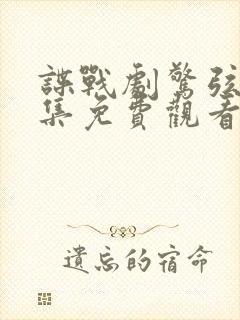 諜戰劇驚弦
集免費觀看
遺忘的宿命